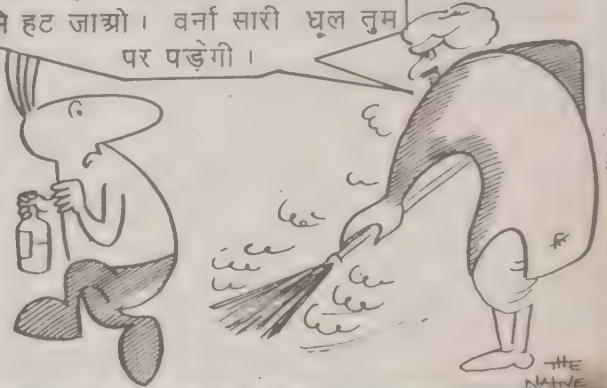 हट जाओ। वर्ना सारी धूल तुम
पर पड़ेगी।
THE
NATIVE